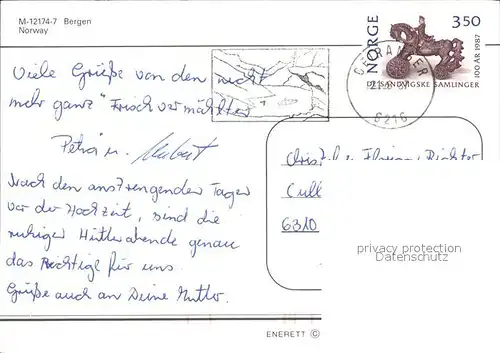 M-12174-7 Bergen
Norway
NORGE
3,50
DE SANDVIGSKE SAMLINGER
100 ÅR 1987
GEIRANGER
6216
Viele Grüße von den nicht
mehr ganz "Frisch vermählten
Petra u. Hubert
Nach den anstrengenden Tagen
vor der Hochzeit, sind die
ruhigen Hüttenabende genau
das Richtige für uns.
Grüße auch an Deine Mutter.
Richter
6310
privacy protection
Datenschutz
ENERETT ©